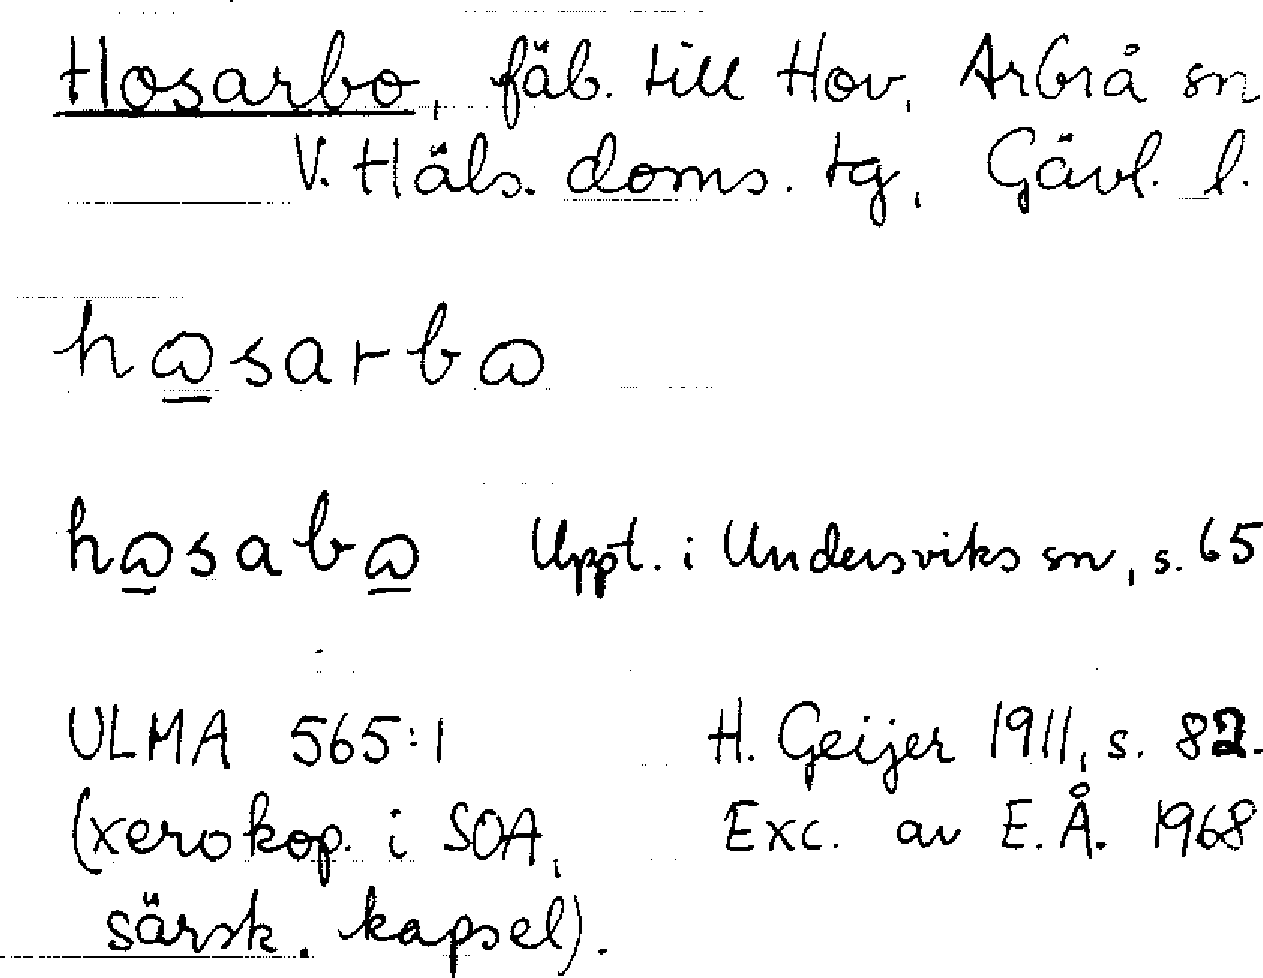 Hosarbo, fäb. till Hov, Arbrå sn
V. Häls. doms. tg, Gävl. l.
hɷ̲sarbɷ
hɷ̲sabɷ̲ Uppt. i Undersviks sn, s. 65
ULMA 565:1 H. Geijer 1911, s. 82.
(xerokop. i SOA, Exc. av E. Å. 1968
särsk. kapsel).